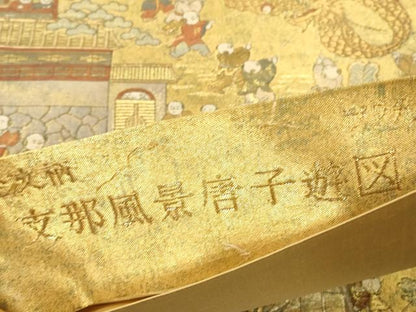 文柄
支那風景唐子遊図